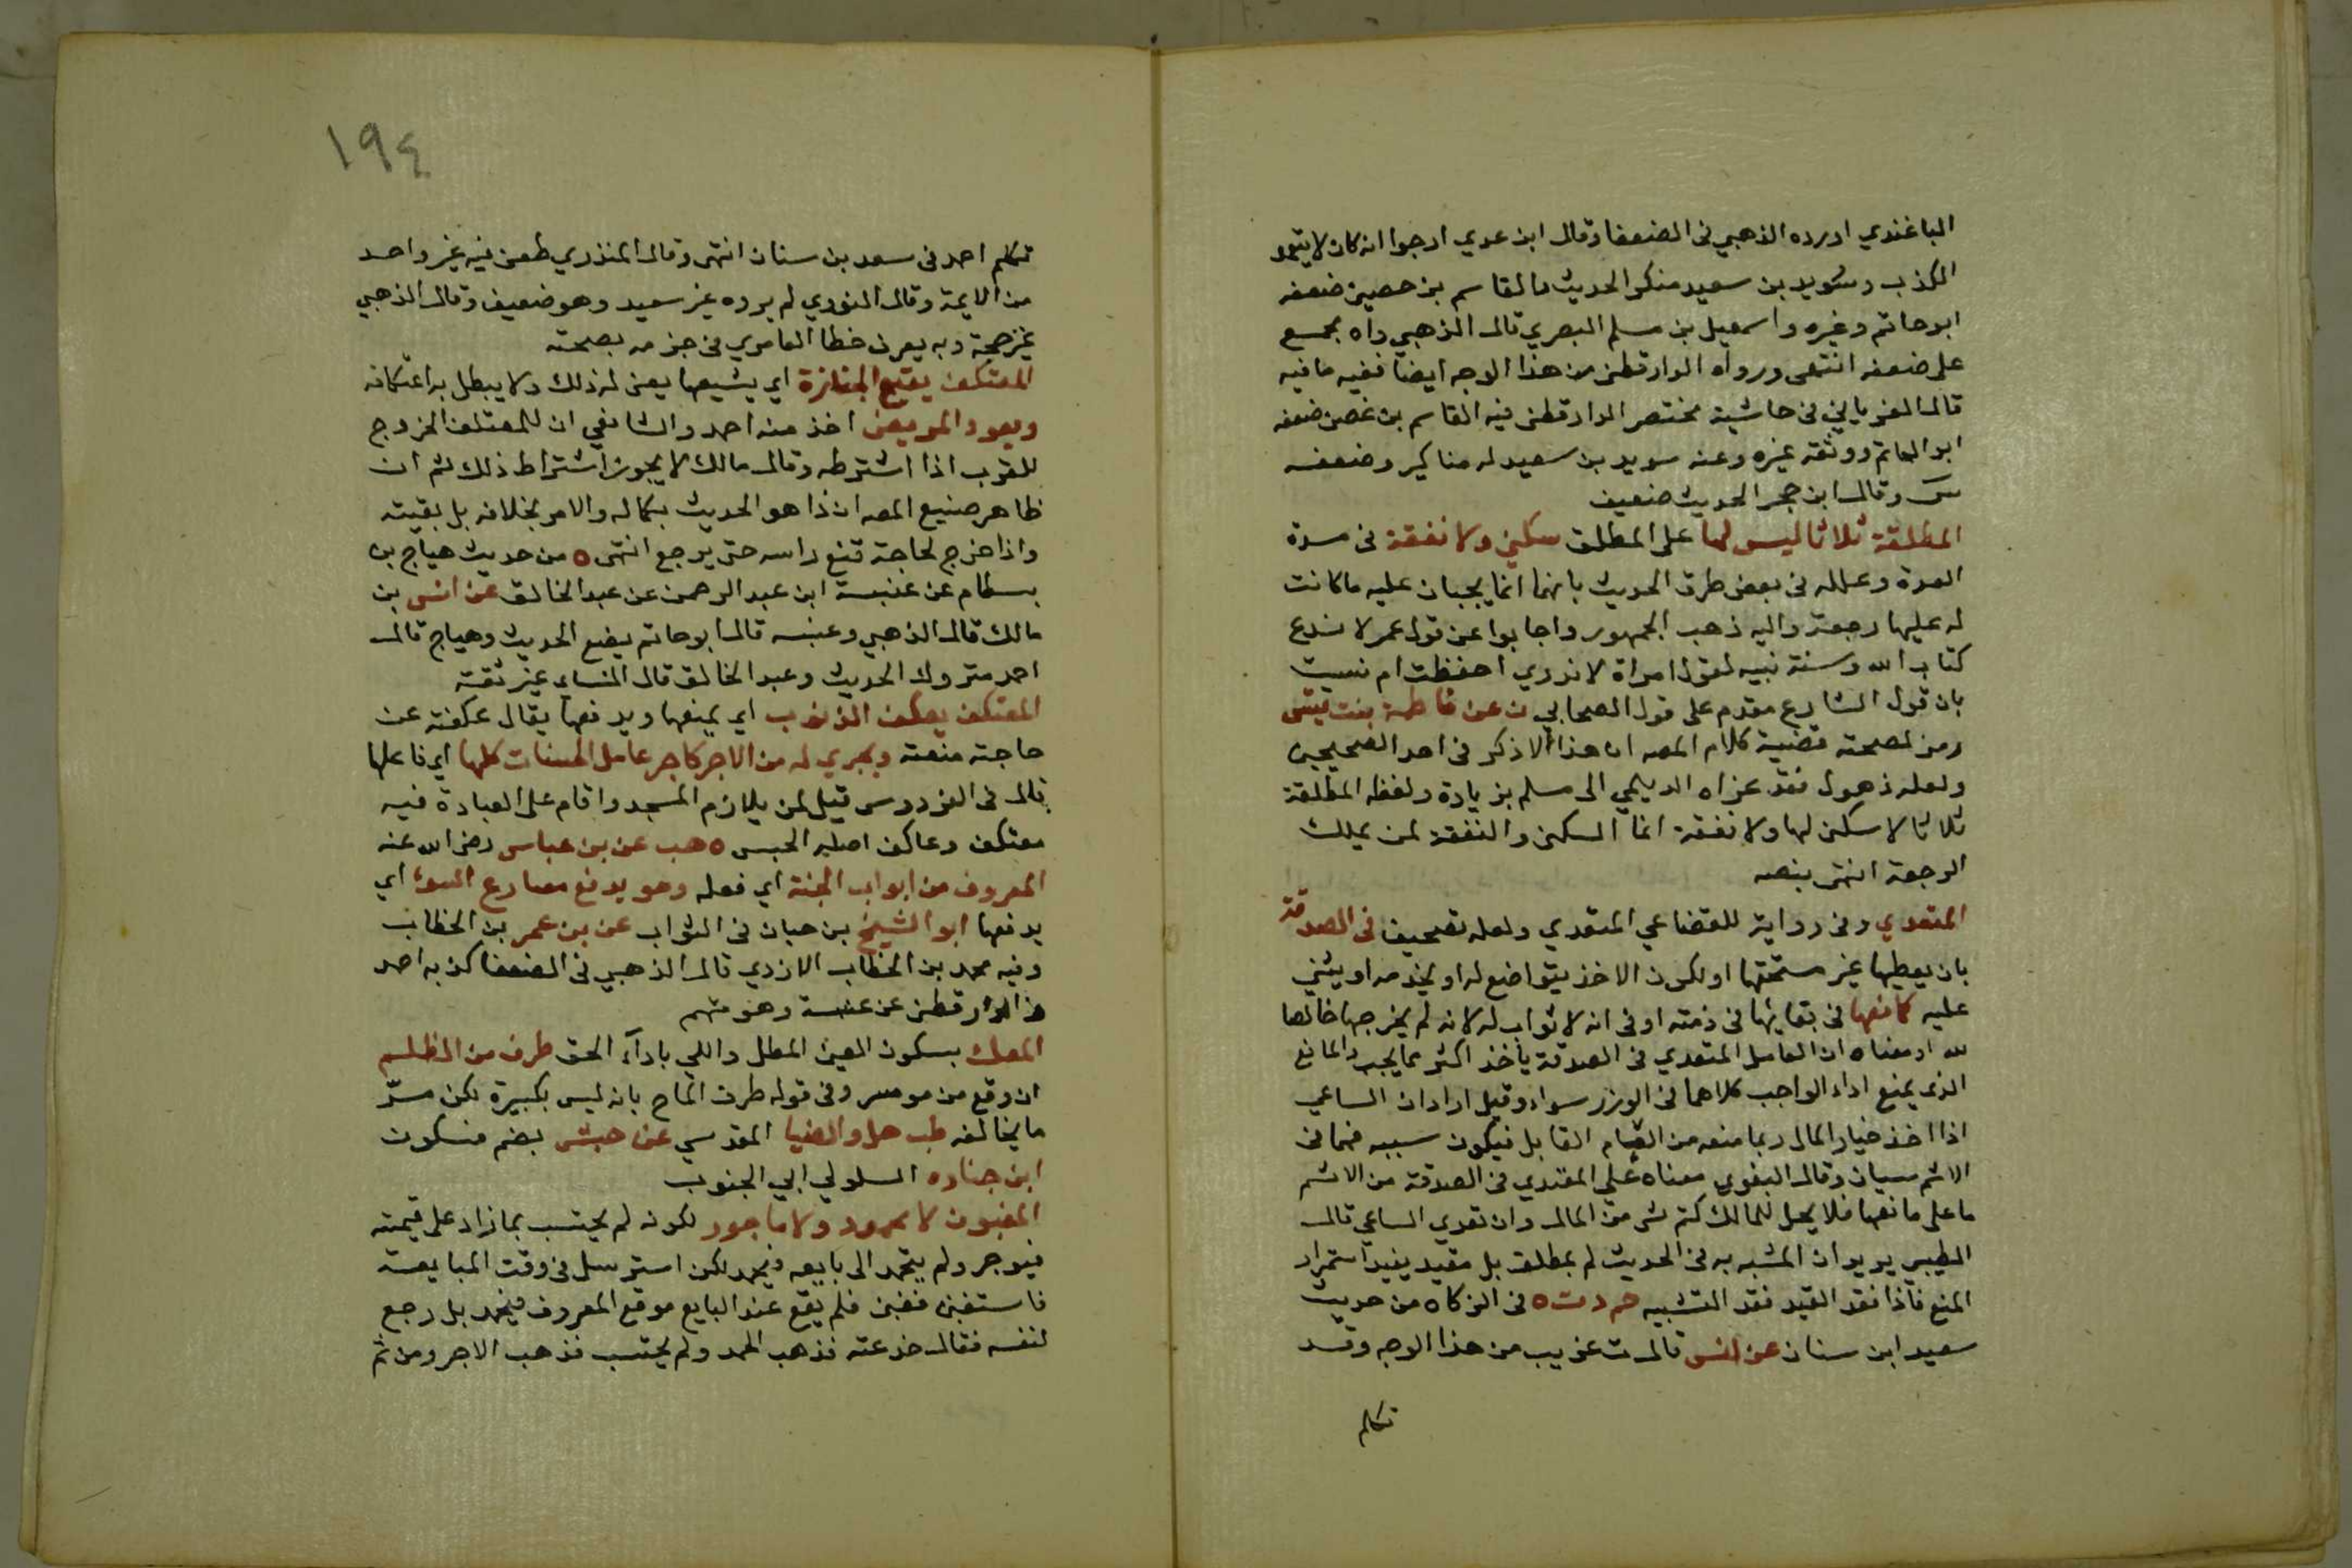 الباغندي اورده الذهبي في الضعفا وقال ابن عدي ارجوا انه كان لا يتعمد
الكذب وسويد بن سعيد منكر الحديث والقاسم بن حصين ضعفه
ابو حاتم وغيره واسمعيل بن مسلم البصري قال الذهبي واه مجمع
على ضعفه انتهى ورواه الدارقطني من هذا الوجه ايضا ففيه ما فيه
قال الغرياني في حاشية مختصر الدارقطني فيه القاسم بن غصن ضعفه
ابو الحاتم ووثقه غيره وعنه سويد بن سعيد له مناكير وضعفه
س وقال ابن حجر الحديث ضعيف
المطلقة ثلاثا ليس لها على المطلق سكنى ولا نفقة في مدة
العدة وعلله في بعض طرق الحديث بانهما انما يجبان عليه ما كانت
له عليها رجعة واليه ذهب الجمهور واجابوا عن قول عمر لا ندع
كتاب الله وسنة نبيه لقول امراة لا ندري احفظت ام نسيت
بان قول الشارع مقدم على قول الصحابي ن عن فاطمة بنت قيس
رمز لصحته قضية كلام المصه ان هذا لا ذكر في احد الصحيحين
ولعله ذهول فقد عزاه الديلمي الى مسلم بزيادة ولفظه المطلقة
ثلاثا لا سكنى لها ولا نفقة انما السكنى والنفقة لمن يملك
الرجعة انتهى بنصه
المتعدي وفي رواية للقضاعي المتعدي ولعله تصحيف في الصدقة
بان يعطيها غير مستحقها او لكون الاخذ يتواضع له او يخدمه او يثني
عليه كمانعها في بقائها في ذمته او في انه لا ثواب له لانه لم يخرجها خالصا
لله او معناه ان العامل المتعدي في الصدقة ياخذ اكثر مما يجب والمانع
الذي يمنع اداء الواجب كلاهما في الوزر سواء وقيل اراد ان الساعي
اذا اخذ خيار المال ربما منعه من العام القابل فيكون سببه فهما في
الاثم سيان وقال البغوي معناه على المعتدي في الصدقة من الاثم
ما على مانعها فلا يحل للمالك كتم شي من المال وان تعدي الساعي قال
الطيبي يريد ان المشبه به في الحديث لم بمطلق بل مقيد يفيد استمرار
المنع فاذا فقد القيد فقد التشبيه حم د ت ه في الزكاه من حديث
سعيد ابن سنان عن انس قال ت غريب من هذا الوجه وقد
تكلم
١٩٤
تكلم احمد في سعد بن سنان انتهى وقال المنذري طعن فيه غير واحد
من الايمة وقال النووي لم يروه غير سعيد وهو ضعيف وقال الذهبي
غير حجة وبه يعرف خطا العامري في جزمه بصحته
المعتكف يتبع الجنازة اي يشيعها يعني له ذلك ولا يبطل به اعتكافه
ويعود المريض اخذ منه احمد والشافعي ان للمعتكف الخروج
للقرب اذا اشترطه وقال مالك لا يجوز اشتراط ذلك ثم ان
ظاهر صنيع المصه ان ذا هو الحديث بكماله والامر بخلافه بل بقيته
واذا خرج لحاجة قنع راسه حتى يرجع انتهى ه من حديث هياج بن
بسطام عن عنبسة ابن عبد الرحمن عن عبد الخالق عن انس بن
مالك قال الذهبي وعنبسه قال ابو حاتم يضع الحديث وهياج قال
احمد متروك الحديث وعبد الخالق قال النساي غير ثقة
المعتكف يعكف الذنوب اي يمنعها ويدفعها يقال عكفته عن
حاجته منعته ويجري له من الاجر كاجر عامل الحسنات كلها اي فاعلها
قال في الفردوس قيل لمن يلازم المسجد واقام على العبادة فيه
معتكف وعاكف اصليه الحبس ه هب عن بن عباس رضي الله عنه
المعروف من ابواب الجنة اي فعله وهو يدفع مصارع السوء اي
يدفعها ابو الشيخ بن حبان في الثواب عن بن عمر بن الخطاب
وفيه محمد بن الخطاب الازدي قال الذهبي في الضعفا كذبه احمد
الدارقطني عن عنبسة وهو متهم
المعك بسكون العين المطل واللي باداء الحق طرف من الظلم
ان وقع من موسر وفي قوله طرف الماح بانه ليس بكبيرة لكن مرّ
ما يخالفه طب حل والضيا المقدسي عن حبشي بضم فسكون
ابن جناده السلولي ابي الجنوب
المغبون لا محمود ولا ماجور لكونه لم يحتسب بما زاد على قيمته
فيوجر ولم يتحمد الى بايعه فيحمد لكن استرسل في وقت المبايعة
فاستغبن فغبن فلم يقع عند البايع موقع المعروف فيحمد بل رجع
لنفسه فقال خدعته فذهب الحمد ولم يحتسب فذهب الاجر ومن ثم